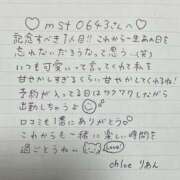 ♡ mst0643さんへ ♡
記念すべき1人目!!これから一生あの日を
忘れないだろうなって思う…(笑)
いつも可愛いって言ってくれて私を
甘やかしすぎるくらいに甘やかしてくれるね!
予約が入ってる日はワクワクしながら
出勤しちゃうよ
口コミも1番にありがとう
これからも一緒に楽しい時間を
過ごとうね♡ Love!
chloe りあん